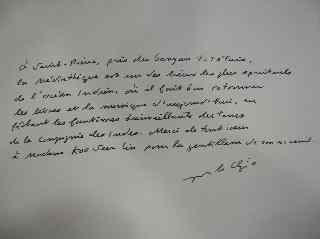 À Saint-Pierre, près des banyans tutélaires,
la médiathèque est un des lieux les plus spirituels
de l'océan Indien, où il fait bon retrouver
les livres et la musique d'aujourd'hui, en
frôlant les fantômes bienveillants du temps
de la Compagnie des Indes. Merci de tout cœur
à madame Koo Seen Lin pour la gentillesse de son accueil.